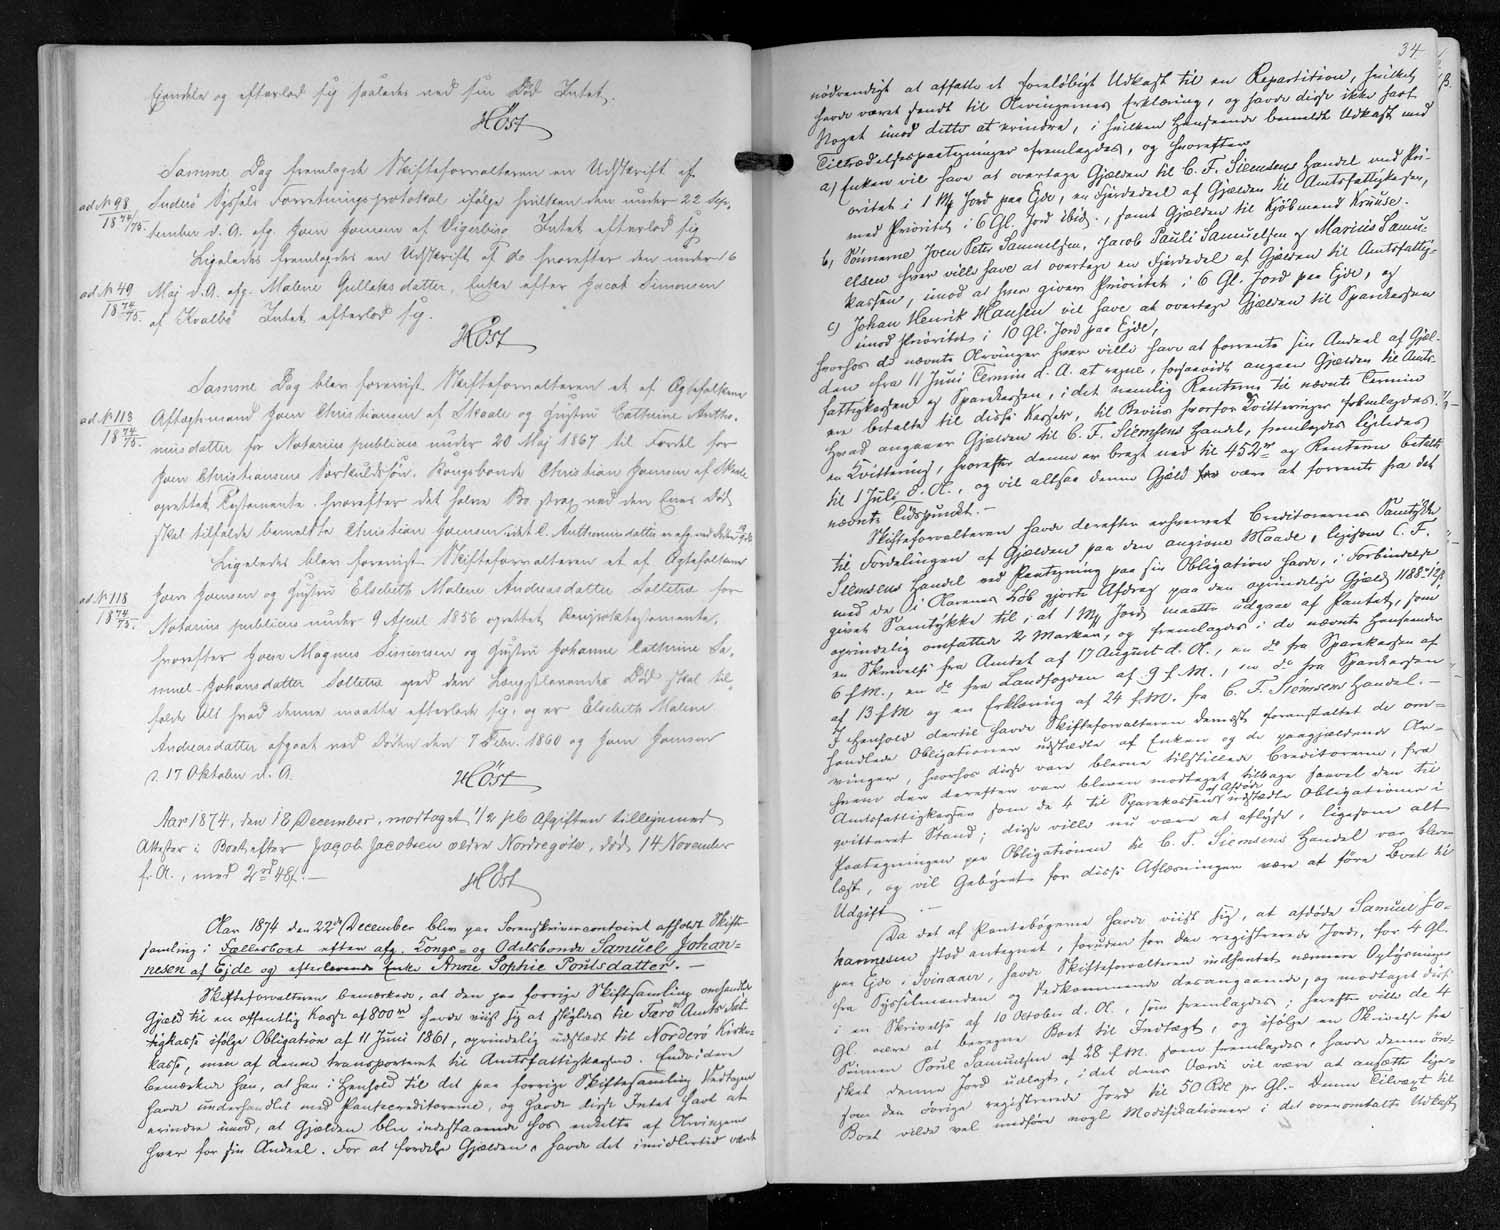 Ejendele og efterlod sig saaledes ved sin Død Intet.
Høst
Samme Dag fremlagde Skifteforvalteren en Udskrift af
ad No 98 1874/75. Suderø Syssels Forretningsprotokol ifølge hvilken den under 22 Sep-
tember d. A. afg. Joen Joensen af Vigerbirg Intet efterlod sig
Ligeledes fremlagdes en Udskrift af do hvorefter den under 6
ad No 49 1874/75. Maj d. A. afg. Malene Gulleksdatter, Enke efter Jacob Simonsen
af Kvalbø Intet efterlod sig.
Høst
Samme Dag blev forevist Skifteforvalteren et af Ægtefolkene
ad No 113 1874/75. Aftægtsmand Joen Christiansen af Skaale og Hustru Cathrine Antho-
niusdatter for Notarius publicus under 20 Maj 1867 til Fordel for
Joen Christiansens Sødskendesøn, Kongsbonde Christian Joensen af Skaale
oprettet Testamente, hvorefter det halve Bo strax ved den Enes Død
skal tilfalde bemeldte Christian Joensen, idet C. Anthoniusdatter er afg. ved Døden
Ligeledes blev forevist Skifteforvalteren et af Ægtefolkene
ad No 118 1874/75. Joen Joensen og Hustru Elsebeth Malene Andreasdatter Soltetra for
Notarius publicus under 9 April 1856 oprettet Reciproktestamente,
hvorefter Joen Magnus Simonsen og Hustru Johanne Cathrine Sa-
muel-Johansdatter Soltetra ved den Længstlevendes Død skal til-
falde Alt hvad denne maatte efterlade sig, og er Elsebeth Malene
Andreasdatter afgaaet ved Døden den 7 Febr. 1860 og Joen Joensen
d. 17 Oktober d. A.
Høst
Aar 1874, den 18 December, modtaget 1/2 pCt Afgiften tillignemed
Attester i Boet efter Jacob Jacobsen ældre Nordregøte, død 14 November
f. A., med 2 rd 48 s. —
Høst
Aar 1874 den 22de December blev paa Sorenskrivercontoiret afholdt Skifte-
samling i Fællesboet efter afg. Kongs- og Odelsbonde Samuel Johan-
nesen af Ejde og efterlevende Enke Anne Sophie Poulsdatter. —
Skifteforvalteren bemærkede, at den paa forrige Skiftesamling omhandlede
Gjæld til en offentlig Kasse af 800 rd havde viist sig at skyldes til Færø Amts Fat-
tigkasse ifølge Obligation af 11 Juni 1861, oprindelig udstedt til Norderø Kirke-
kasse, men af denne transporteret til Amtsfattigkassen. Endvidere
bemærkede han, at han i Henhold til det paa forrige Skiftesamling Vedtagne
havde underhandlet med Pantecreditorerne, og havde disse Intet havt at
erindre imod, at Gjælden blev indestaaende hos enkelte af Arvingerne
hver for sin Andeel. For at fordele Gjælden havde det imidlertid været
34.
nødvendigt at affatte et foreløbigt Udkast til en Repartition, hvilket
havde været sendt til Arvingernes Erklæring, og havde disse ikke havt
Noget imod dette at erindre, i hvilken Henseende bemeldte Udkast med
Tiltrædelsespaategninger fremlagdes, og hvorefter
a) Enken vil have at overtage Gjælden til C. F. Siemsens Handel med Pri-
oritet i 1 Mk Jord paa Ejde, en Fjerdedeel af Gjælden til Amtsfattigkassen,
med Prioritet i 6 Gl. Jord ibid., samt Gjælden til Kjøbmand Kruuse.
b) Sønnerne Joen Peter Samuelsen, Jacob Pauli Samuelsen og Marius Samu-
elsen hver ville have at overtage en Fjerdedel af Gjælden til Amtsfattig-
kassen, imod at hver giver Prioritet i 6 Gl. Jord paa Ejde, og
c) Johan Henrik Hansen vil have at overtage Gjælden til Sparekassen
imod Prioritet i 10 Gl. Jord paa Ejde,
hvorhos de nævnte Arvinger hver ville have at forrente sin Andeel af Gjæl-
den fra 11 Juni Termin d. A. at regne, forsaavidt angaaer Gjælden til Amts-
fattigkassen og Sparekassen, idet nemlig Renterne til nævnte Termin
ere betalte til disse Kasser, til Beviis hvorfor Qvitteringer fremlagdes.
Hvad angaaer Gjælden til C. F. Siemsens Handel, fremlagdes ligeledes
en Kvittering, hvorefter denne er bragt ned til 452 rd og Renterne betalte
til 1 July d. A., og vil altsaa denne Gjæld være at forrente fra det
nævnte Tidspunkt. —
Skifteforvalteren havde derefter erhvervet Creditorernes Samtykke
til Fordelingen af Gjælden paa den angivne Maade, ligesom C. F.
Siemsens Handel ved Paategning paa sin Obligation havde, i Forbindelse
med de i Aarenes Løb gjorte Afdrag paa den oprindelige Gjæld, 1188 rd
givet Samtykke til, at 1 Mk Jord maatte udgaae af Pantet, som
oprindelig omfattede 2 Marker, og fremlagdes i de nævnte Henseender
en Skrivelse fra Amtet af 17 August d. A., en do fra Sparekassen af
6 f. M., en do fra Landfogden af 9 f. M., en do fra Sparekassen
af 13 f. M. og en Erklæring af 24 f. M. fra C. F. Siemsens Handel. —
I Henhold dertil havde Skifteforvalteren dernæst foranstaltet de om-
handlede Obligationer udstedte af Enken og de paagjældende Ar-
vinger, hvorhos disse vare blevne tilstillede Creditorerne, fra
hvem der derefter var bleven modtaget tilbage saavel den til
Amtsfattigkassen som de 4 til Sparekassen af Afdøde udstedte Obligationer i
qvitteret Stand; disse ville nu være at aflyse, ligesom alt
Paategningen paa Obligationen til C. F. Siemsens Handel var bleven
læst, og vil Gebyret for disse Aflæsninger være at føre Boet til
Udgift. —
Da det af Pantebøgerne havde viist sig, at afdøde Samuel Jo-
hannesen stod antegnet, foruden for den registrerede Jord, for 4 Gl.
paa Ejde i Svinaaer, havde Skifteforvalteren indhentet nærmere Oplysninger
fra Sysselmanden og Vedkommende desangaaende, og modtaget disse
i en Skrivelse af 10 October d. A., som fremlagdes; herefter ville de 4
Gl. være at beregne Boet til Indtægt, og ifølge en Skrivelse fra
Sønnen Poul Samuelsen af 28 f. M. som fremlagdes, havde denne øn-
sket denne Jord udlagt, idet dens Værdi vil være at ansætte lige-
som den øvrige registrerede Jord til 50 Rdl pr Gl.. Denne Tilvæxt til
Boet vilde vel medføre nogle Modifikationer i det ovenomtalte Udkast